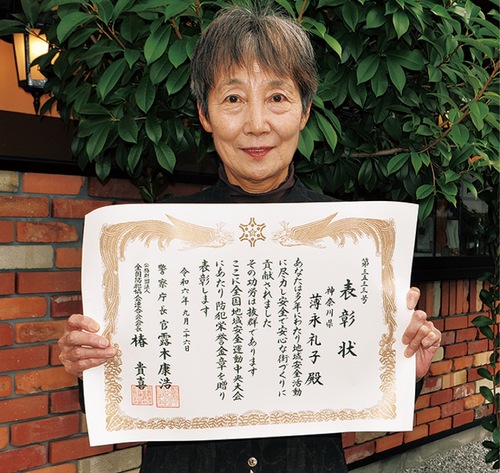 表彰状
神奈川県
薄永礼子殿
あなたは多年にわたり地域安全活動
に尽力し安全で安心な街づくりに
貢献されました
その功労は抜群であります
ここに全国地域安全運動中央大会
にあたり防犯栄誉金章を贈り
表彰します
令和六年九月二十六日
警察庁長官露木康浩
公益財団法人
全国防犯協会連合会会長
椿貴喜